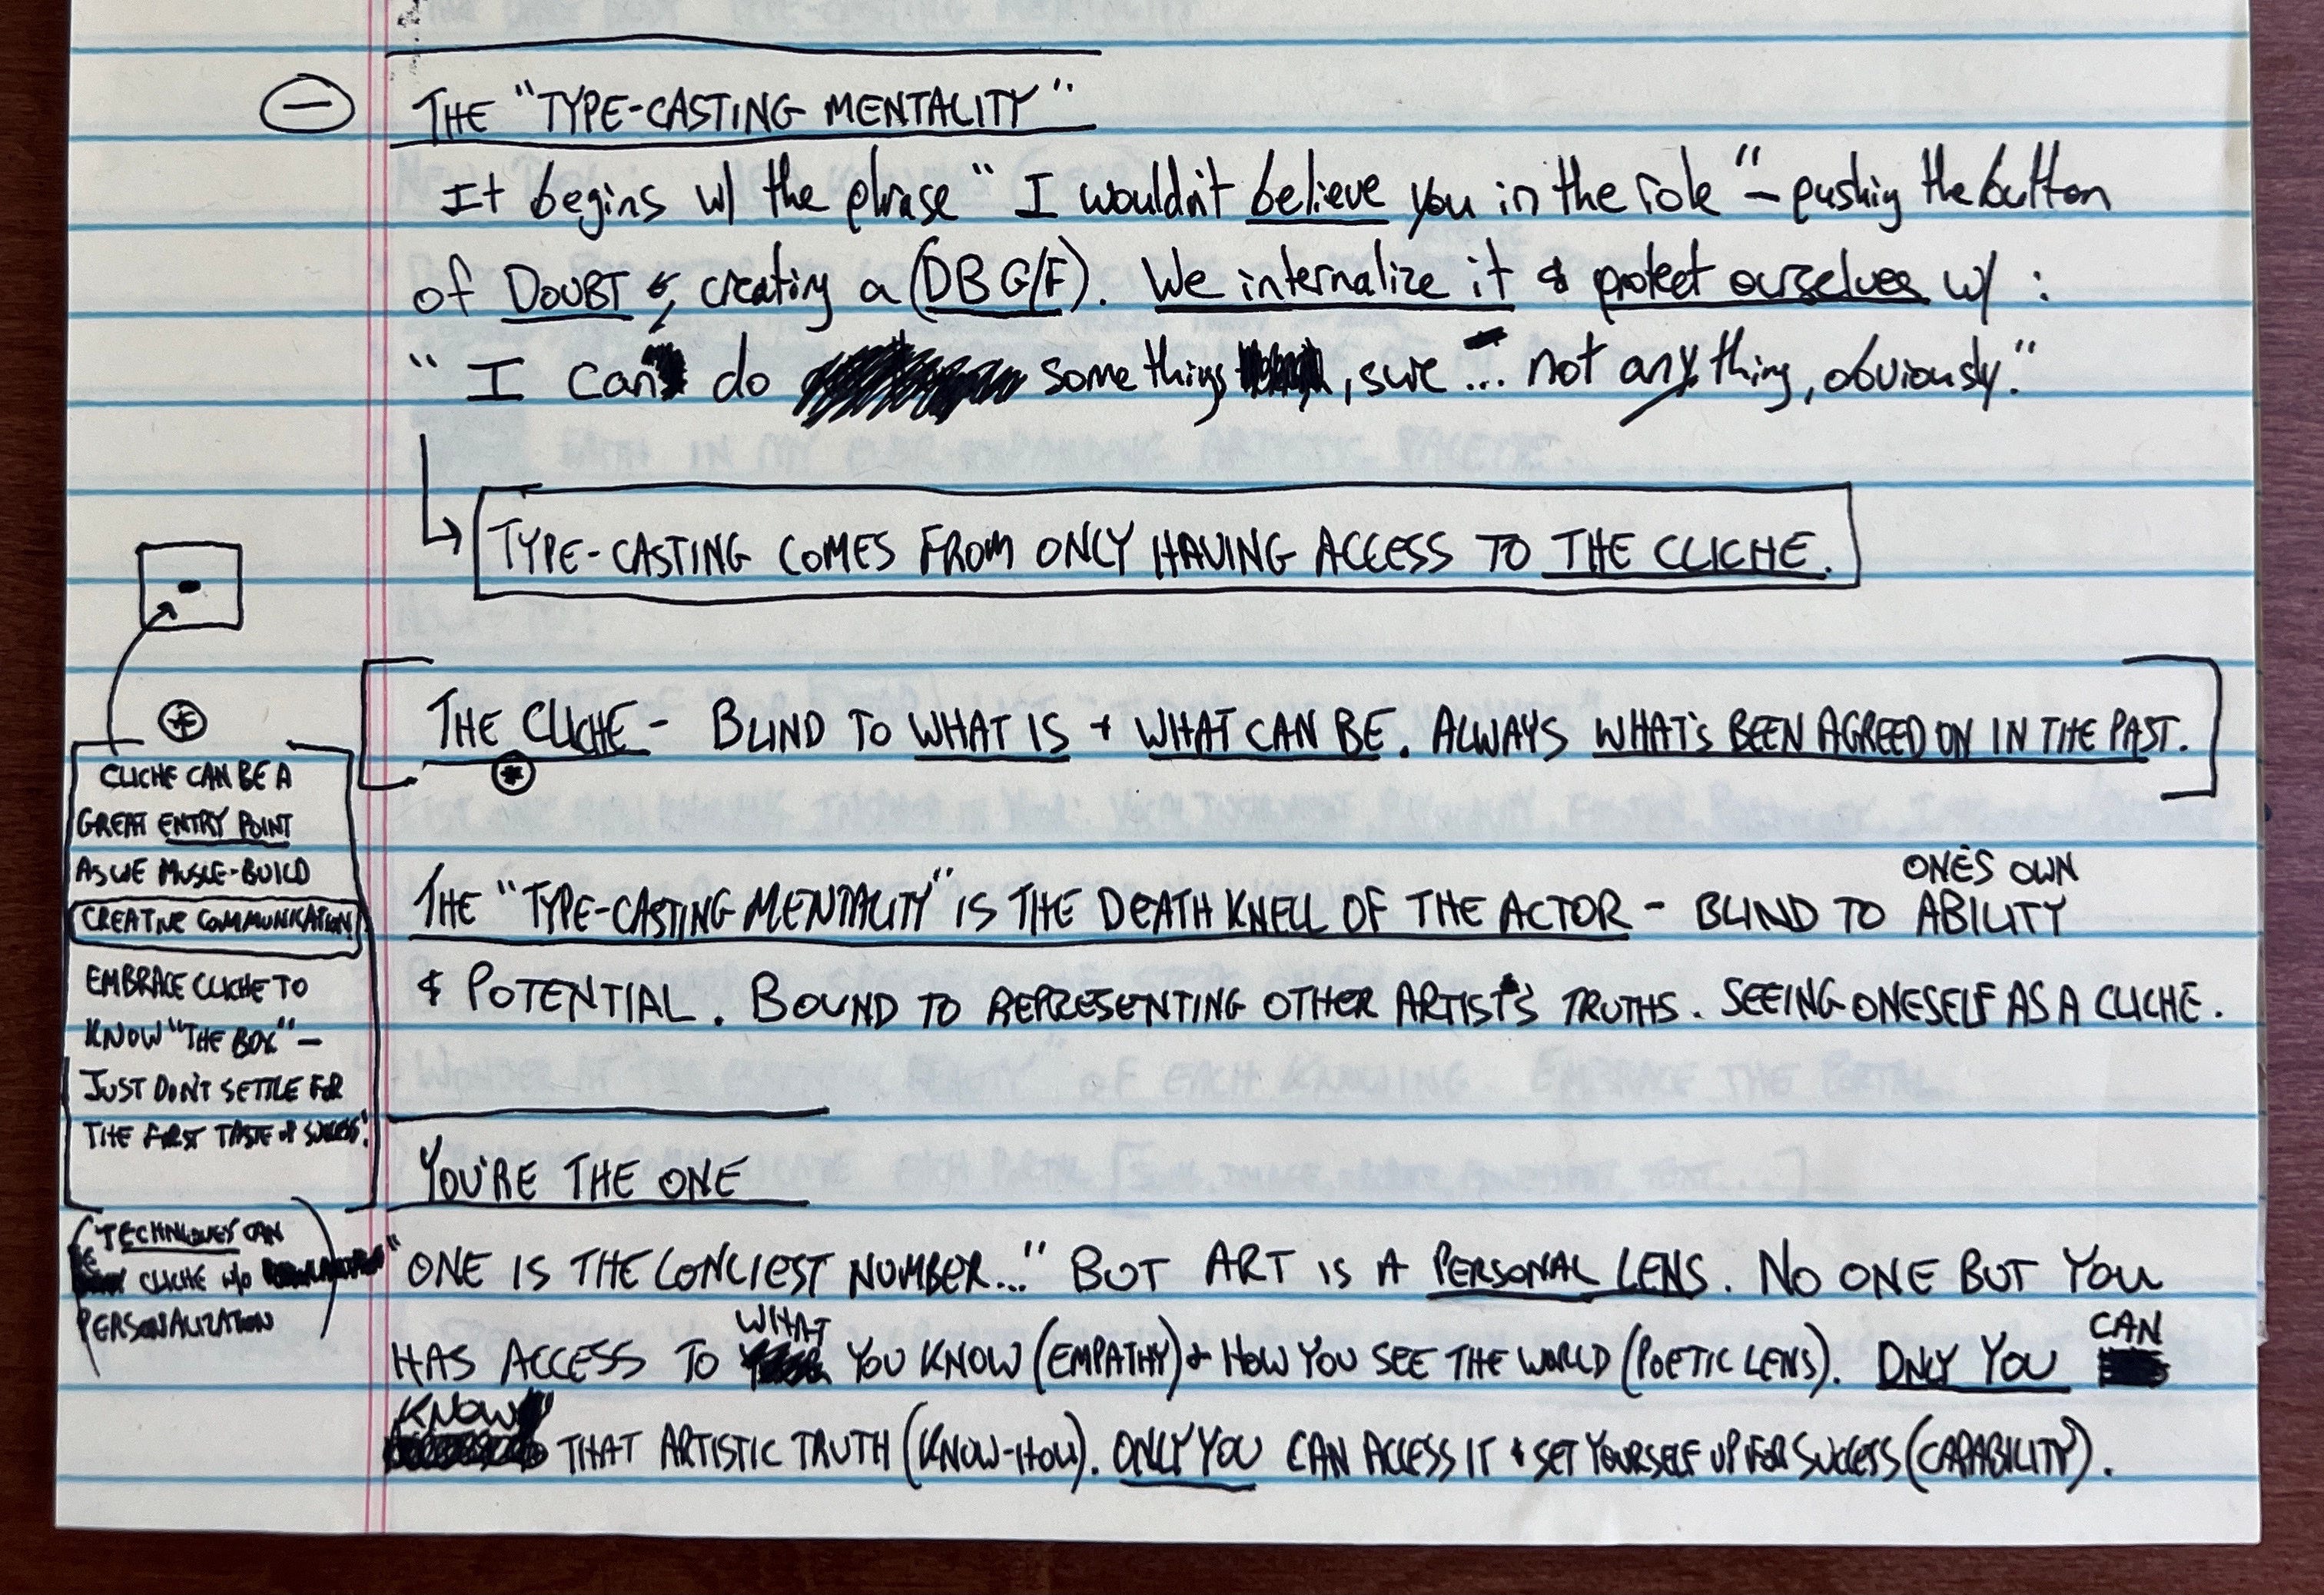 THE "TYPE-CASTING MENTALITY"
It begins w/ the phrase "I wouldn't believe you in the role" - pushing the button
of DOUBT & creating a (DB G/F). We internalize it & protect ourselves w/ :
"I can do something, sure ... not anything, obviously."
TYPE-CASTING COMES FROM ONLY HAVING ACCESS TO THE CLICHE.
THE CLICHE - BLIND TO WHAT IS + WHAT CAN BE. ALWAYS WHAT'S BEEN AGREED ON IN THE PAST.
*
*
CLICHE CAN BE A
GREAT ENTRY POINT
AS WE MUSCLE-BUILD
CREATIVE COMMUNICATION
EMBRACE CLICHE TO
KNOW "THE BOX" -
JUST DON'T SETTLE FOR
THE FIRST TASTE of SUCCESS.
(TECHNIQUES CAN
BE CLICHE w/o
PERSONALIZATION)
ONE'S OWN
THE "TYPE-CASTING MENTALITY" IS THE DEATH KNELL OF THE ACTOR - BLIND TO ABILITY
& POTENTIAL. BOUND TO REPRESENTING OTHER ARTIST'S TRUTHS. SEEING ONESELF AS A CLICHE.
YOU'RE THE ONE
"ONE IS THE LONLIEST NUMBER..." BUT ART IS A PERSONAL LENS. NO ONE BUT YOU
HAS ACCESS TO WHAT YOU KNOW (EMPATHY) & HOW YOU SEE THE WORLD (POETIC LENS). ONLY YOU CAN
KNOW THAT ARTISTIC TRUTH (KNOW-HOW). ONLY YOU CAN ACCESS IT & SET YOURSELF UP FOR SUCCESS (CAPABILITY).